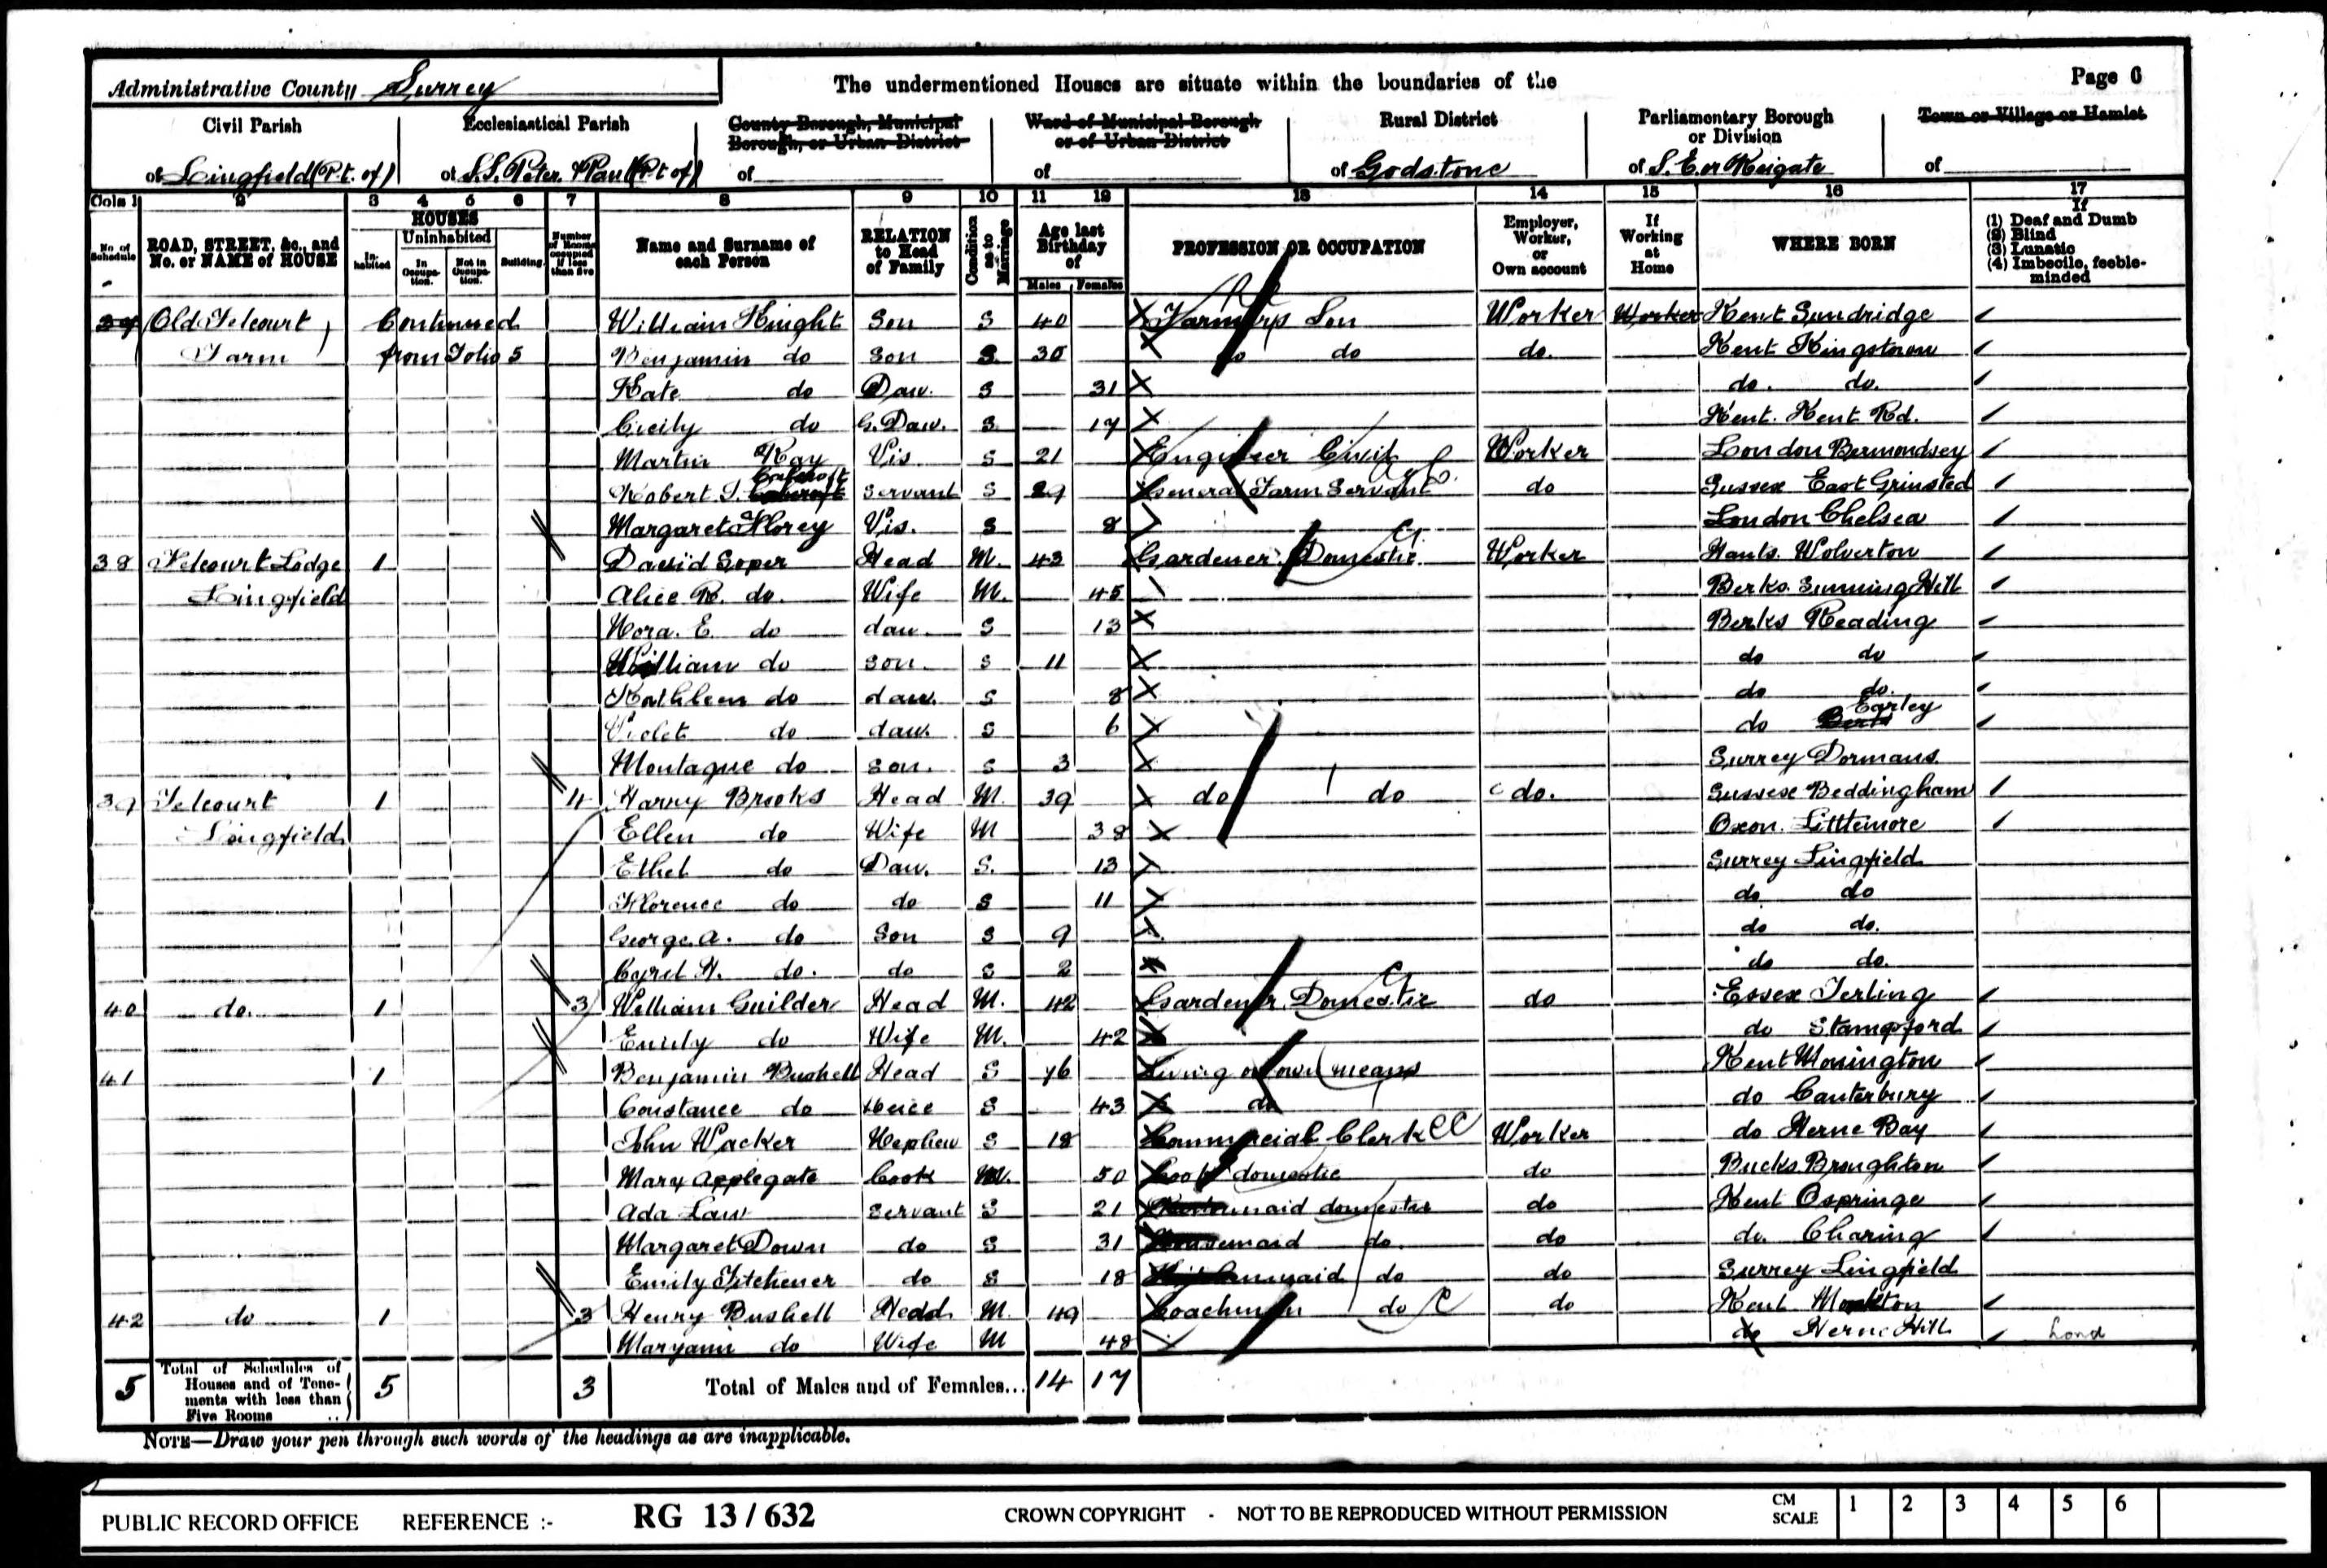 Administrative County Surrey
The undermentioned Houses are situate within the boundaries of the
Page 6
Civil Parish
of Lingfield (Pt. of)
Ecclesiastical Parish
of S.S. Peter & Paul (Pt of)
County Borough, Municipal Borough, or Urban District
of
Ward of Municipal Borough or of Urban District
of
Rural District
of Godstone
Parliamentary Borough or Division
of S.E. or Reigate
Town or Village or Hamlet
of
Cols 1 2 3 4 5 6 7 8 9 10 11 12 13 14 15 16 17
No. of Schedule
ROAD, STREET, &c., and No. or NAME of HOUSE
HOUSES
Inhabited
Uninhabited
In Occupation.
Not in Occupation.
Building.
Number of Rooms occupied if less than five
Name and Surname of each Person
RELATION to Head of Family
Condition as to Marriage
Age last Birthday of
Males Females
PROFESSION OR OCCUPATION
Employer, Worker, or Own account
If Working at Home
WHERE BORN
If
(1) Deaf and Dumb
(2) Blind
(3) Lunatic
(4) Imbecile, feeble-minded
37 Old Felcourt Continued William Knight Son S 40 Farmer's Son Worker Worker Kent Sundridge
Farm from Folio 5 Benjamin do Son S 35 do do do. Kent Kingstown
Kate do Daw. S 31 do. do.
Cicily do G. Daw. S 17 Kent. Kent Rd.
Martin Ray Vis S 21 Engineer Civil Worker London Bermondsey
Robert J. Servant S 29 General Farm Servant do Sussex East Grinsted
Margaret Florey Vis. S 8 London Chelsea
38 Felcourt Lodge 1 David Soper Head M. 43 Gardener Domestic Worker Hants. Wolverton
Lingfield Alice R. do. Wife M. 45 Berks. Sunning Hill
Nora. E. do daw. S 13 Berks Reading
William do son S 11 do do
Kathleen do daw. S 8 do do.
Violet do daw. S 6 do Earley
Montague do son. S 3 Surrey Dormans
39 Felcourt 1 4 Harry Brooks Head M. 39 do do do. Sussex Beddingham
Lingfield Ellen do Wife M 38 Oxon. Littlemore
Ethel do Daw. S. 13 Surrey Lingfield
Florence do do S 11 do do
George. A. do Son S 9 do do.
Cyril H. do. do S 2 do do.
40 do. 1 3 William Guilder Head M. 42 Gardener Domestic do Essex Terling
Emily do Wife M. 42 do Stampford
41 1 Benjamin Bushell Head S 76 Living on own means Kent Monington
Constance do Neice S 43 do do Canterbury
John Wacker Nephew S 18 Commercial Clerk CC Worker do Herne Bay
Mary Applegate Cook 50 Cook domestic do Bucks. Broughton
Ada Law Servant S 21 domestic do Kent Ospringe
Margaret Down do S 31 Housemaid do. do do. Charing
Emily Fitchener do S 18 Kitchenmaid do do Surrey Lingfield
42 do 1 3 Henry Bushell Head M. 49 Coachman do do Kent Monkton
Maryann do Wife M 48 do Herne Hill Lond
5 Total of Schedules of Houses and of Tenements with less than Five Rooms .. 5 3 Total of Males and of Females... 14 17
NOTE—Draw your pen through such words of the headings as are inapplicable.
PUBLIC RECORD OFFICE REFERENCE :- RG 13 / 632 CROWN COPYRIGHT - NOT TO BE REPRODUCED WITHOUT PERMISSION CM SCALE 1 2 3 4 5 6